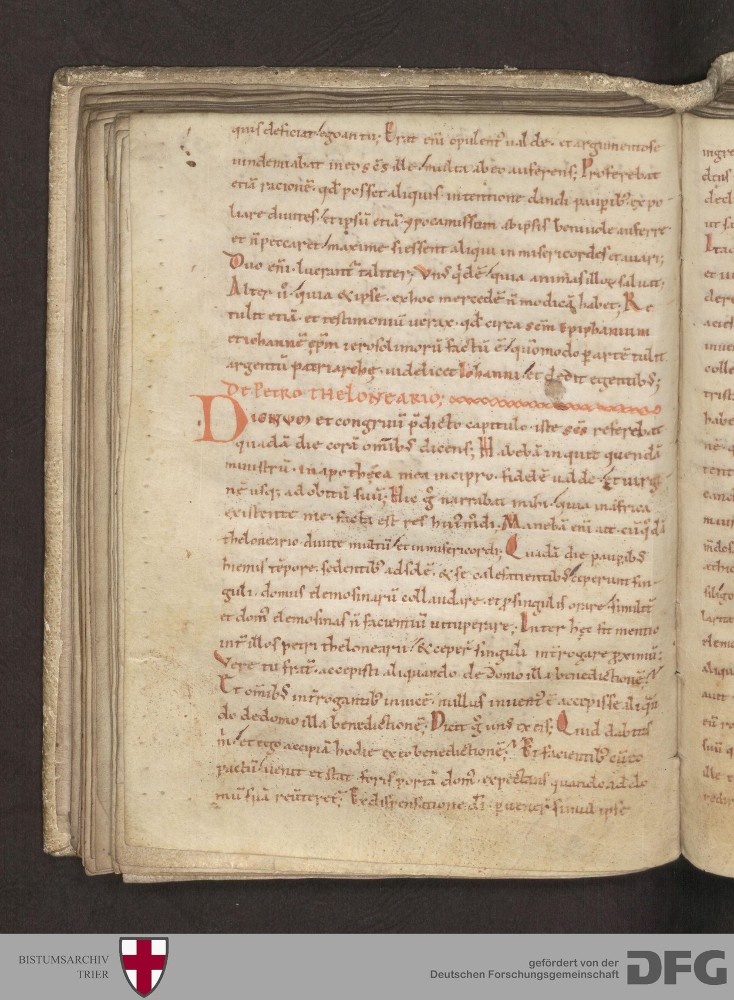 quis deficiat. ego antur; Erat eni opulent' ualde. et argumentose
uindemiabat in eos scs ille. multa ab eo auferens; Proferebat
etiā racionē. qd posset aliquis intentione dandi pauperib; expo
liare diuites. et ipsū etiā ypocamissum ab ipsis beniuole auferre
et n peccaret. maxime si essent aliqui inmisericordes et auari;
Duo eni luerunt' taliter; Vnū qdē. quia animas illoꝝ saluat;
Alter ū. quia et ipse ex hoc mercedē n modicā habet; Re
tulit etiā et testimoniū uerax. qd circa scm epiphanium
et iohannē epm ierosolimorū factū ē. quomodo p artē tulit
argentū patriarchę. uidelicet iohanni. et dedit egentib;;
De petro theloneario;
Dignum et congruū pdicto capitulo. iste scs referebat
quadā die corā omib; dicens; Habebā inquit quendā
ministrū. in apotheca mea in cipro. fidelē ualde. et uirgi
nē usq; ad obitū suū; Hic g narrabat mihi. quia in africa
existente me. facta est res hui'modi. Manebā eni att cuidā
theloneario diuite multū. et inmisericordi; Quadā die paupib;
hiemis tēpore sedentib; ad solē. et se calefacientib;. ceperunt sin
guli. domus elemosinariū collaudare. et p singulis orare. similit'
et domos elemosinas n facientiū uituperare; Inter hęc fit mentio
int' illos petri thelonearii. et ceper' singuli int'rogare pximū;
Vere tu frat'. accepisti aliquando de domo illa benedictionē;
Et omib; int'rogantib; inuicē. nullus inuent' ē accepisse aliqn
do de domo illa benedictionē; Dicit g unus ex eis; Quid dabitis
m. et ego accipiā hodie ex eo benedictionē; Et facientib; cū eo
pactū. uenit et stat foris portā dom'. expectans quando ad do
mū suā reuteret'; Ex dispensatione di. puener' simul ipse
BISTUMSARCHIV
TRIER
gefördert von der
Deutschen Forschungsgemeinschaft
DFG